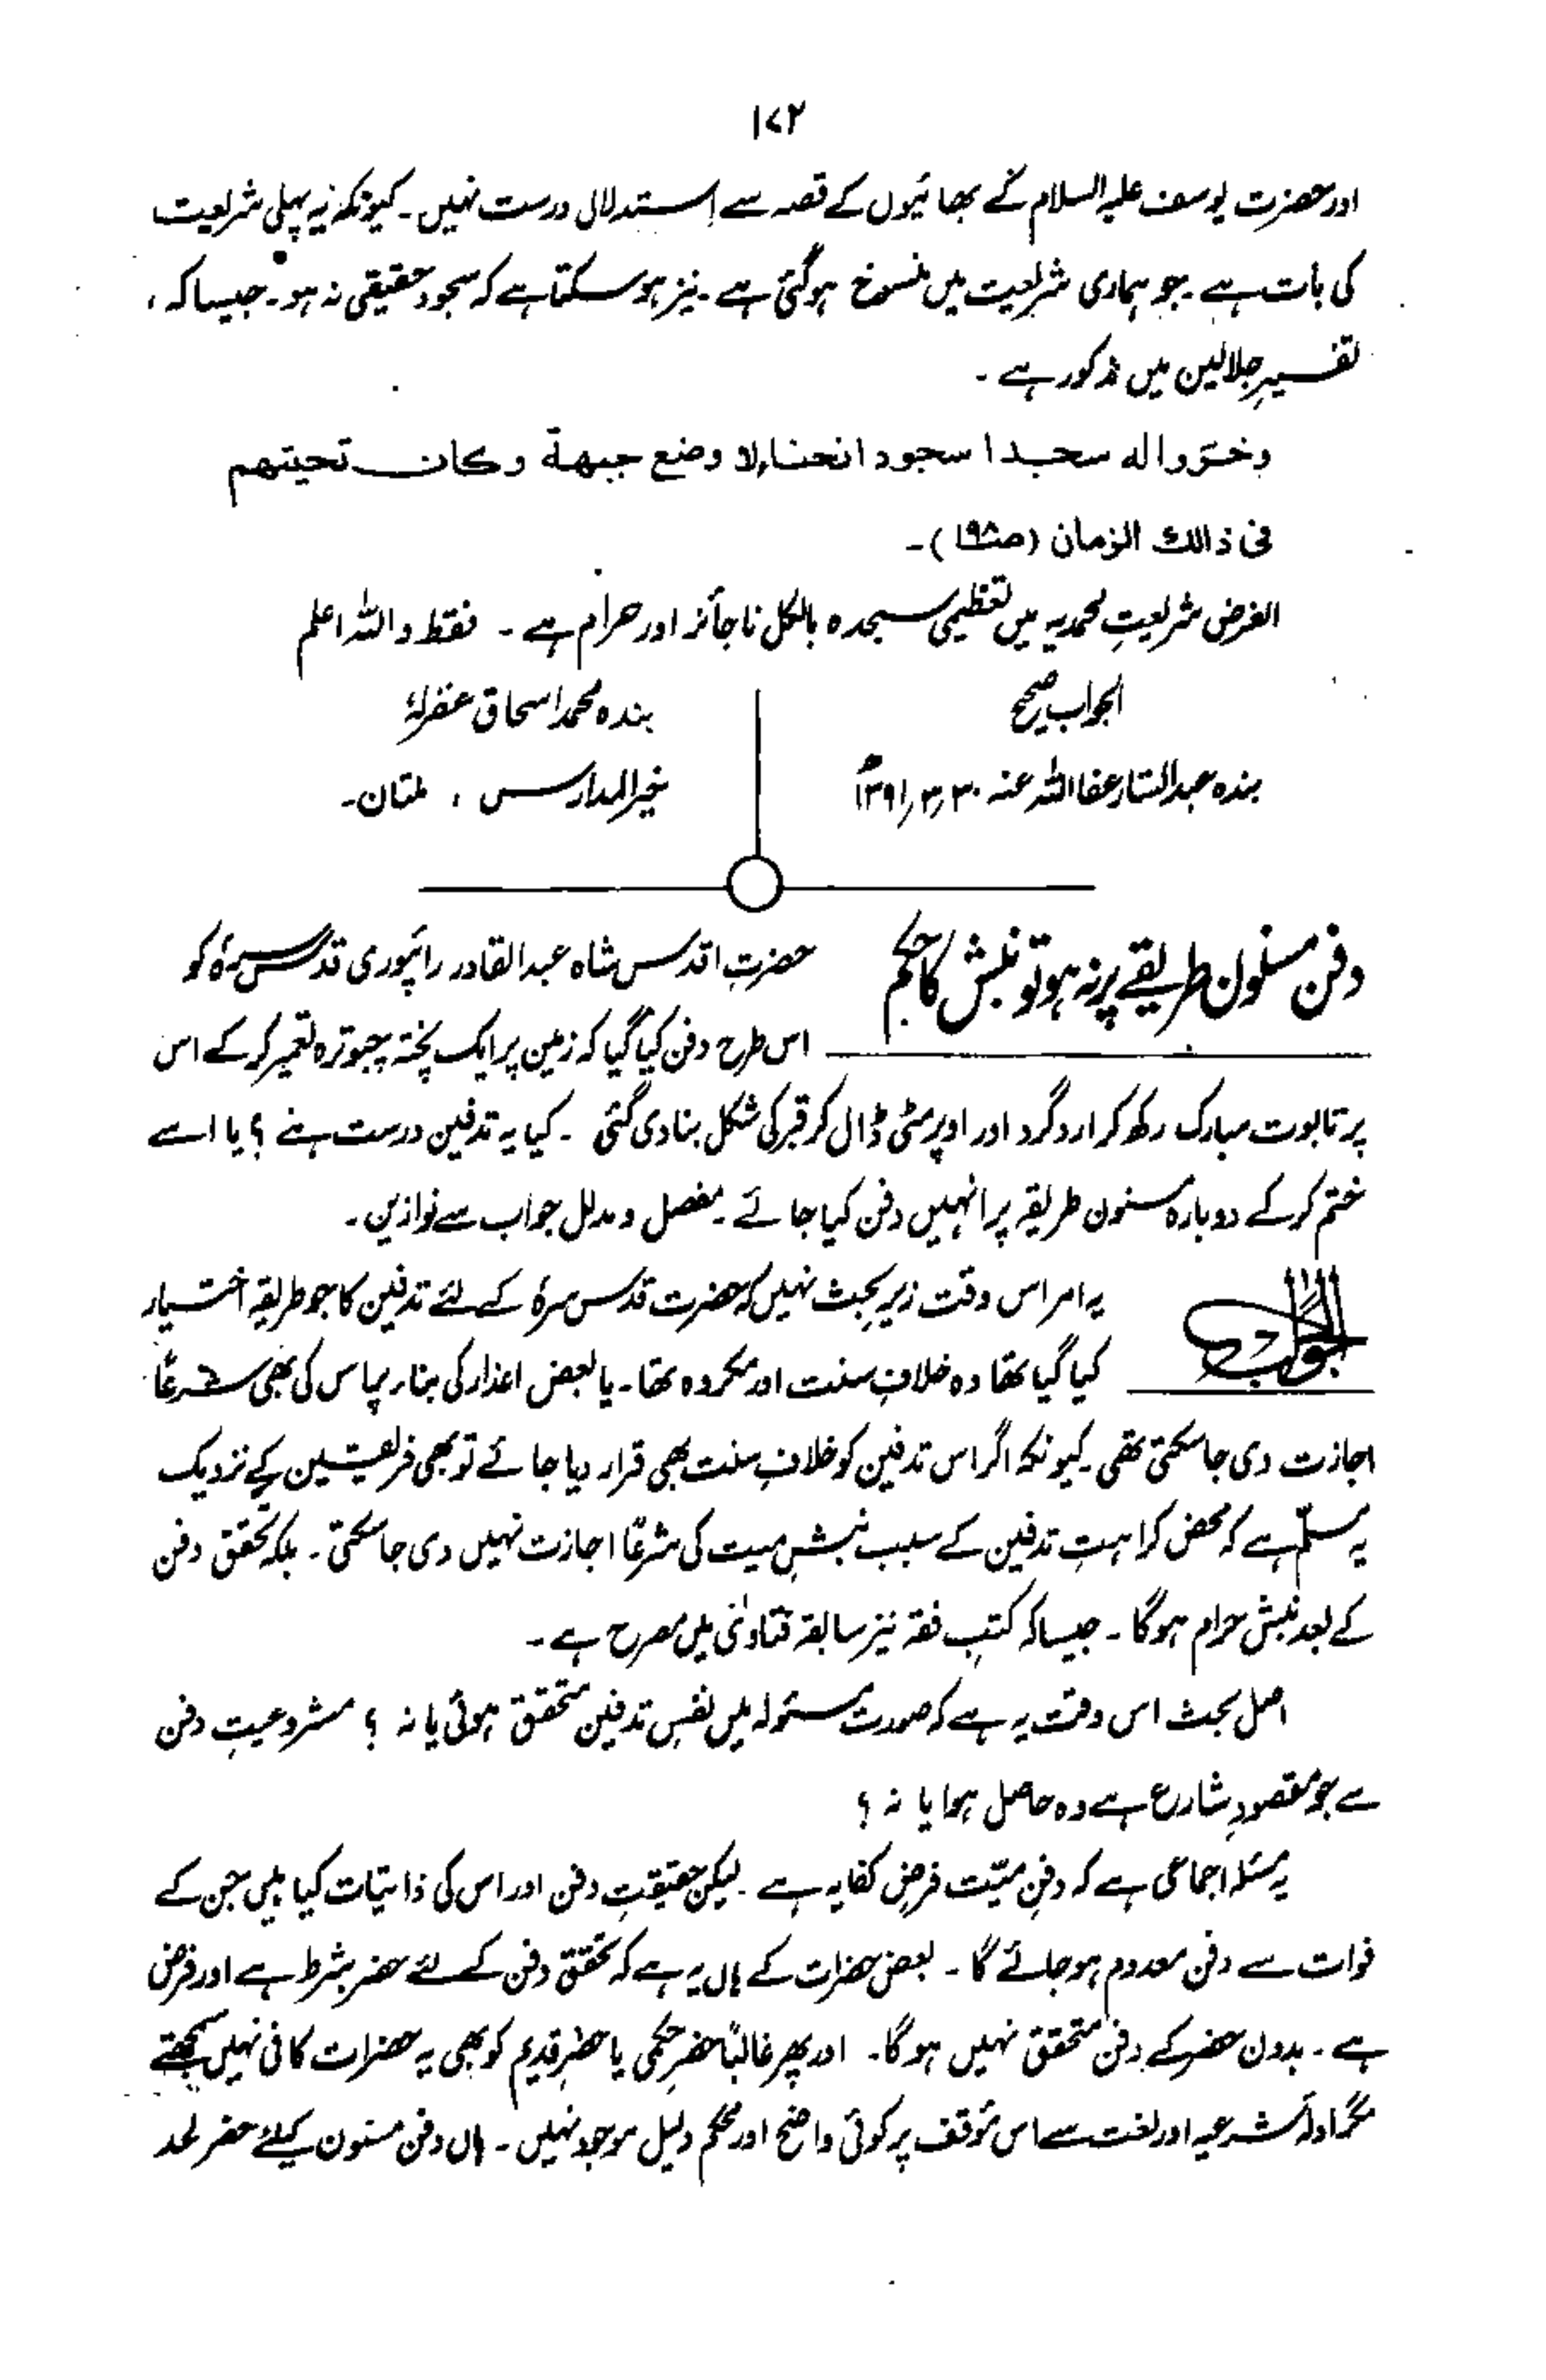 ۱۷۲
اور حضرت یوسف علیہ السلام کے بھائیوں کے قصہ سے استدلال درست نہیں۔ کیونکہ یہ پہلی شریعت
کی بات ہے۔ جو ہماری شریعت میں منسوخ ہوگئی ہے۔ نیز ہو سکتا ہے کہ سجود حقیقی نہ ہو۔ جیسا کہ،
تفسیرِ جلالین میں مذکور ہے۔
وخرّوا له سجدا سجود انحناء لا وضع جبهة وكان تحيتهم
فی ذالك الزمان (ص۱۹۸)۔
الغرض شریعتِ محمدیہ میں تعظیمی سجدہ بالکل ناجائز اور حرام ہے۔ فقط واللہ اعلم
الجواب صحیح
بندہ محمد اسحاق غفرلہٗ
بندہ عبدالستار عفا اللہ عنہ ۳۰؍۳؍۱۳۹۱ھ
خیر المدارس ، ملتان۔
دفن مسنون طریقے پر نہ ہو تو نبش کا حکم
حضرتِ اقدس شاہ عبدالقادر رائپوری قدس سرہٗ کو
اس طرح دفن کیا گیا کہ زمین پر ایک پختہ چبوترہ تعمیر کرکے اس
پر تابوت مبارک رکھ کر اردگرد اور اوپر مٹی ڈال کر قبر کی شکل بنا دی گئی ۔ کیا یہ تدفین درست ہے ؟ یا اسے
ختم کرکے دوبارہ مسنون طریقہ پر انہیں دفن کیا جائے۔ مفصل و مدلل جواب سے نوازیں۔
الجواب
یہ امر اس وقت زیرِ بحث نہیں کہ حضرت قدس سرہٗ کے لئے تدفین کا جو طریقہ اختیار
کیا گیا تھا وہ خلافِ سنت اور مکروہ تھا۔ یا بعض اعذار کی بناء پر اس کی بھی شرعًا
اجازت دی جا سکتی تھی۔ کیونکہ اگر اس تدفین کو خلافِ سنت بھی قرار دیا جائے تو بھی فریقین کے نزدیک
یہ مسلّم ہے کہ محض کراہتِ تدفین کے سبب نبشِ میت کی شرعًا اجازت نہیں دی جا سکتی۔ بلکہ تحقق دفن
کے بعد نبش حرام ہوگا۔ جیسا کہ کتبِ فقہ نیز سابقہ فتاوٰی میں مصرح ہے۔
اصل بحث اس وقت یہ ہے کہ صورت مسئولہ میں نفسِ تدفین متحقق ہوئی یا نہ ؟ مشروعیتِ دفن
سے جو مقصودِ شارع ہے وہ حاصل ہوا یا نہ ؟
یہ مسئلہ اجماعی ہے کہ دفنِ میّت فرضِ کفایہ ہے۔ لیکن حقیقتِ دفن اور اس کی ذاتیات کیا ہیں جن کے
فوات سے دفن معدوم ہو جائے گا۔ بعض حضرات کے ہاں یہ ہے کہ تحقق دفن کے لئے حفر شرط ہے اور فرض
ہے۔ بدون حفر کے دفن متحقق نہیں ہوگا۔ اور پھر غالبًا حفرِ حکمی یا حفرِ قدیم کو بھی یہ حضرات کافی نہیں سمجھتے
مگر ادلہ شرعیہ اور لغت سے اس مؤقف پر کوئی واضح اور محکم دلیل موجود نہیں۔ ہاں دفن مسنون کیلئے حفر لحد